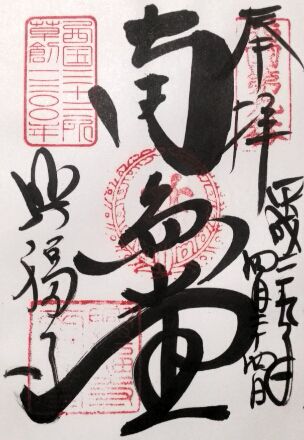 奉拝
平成二十九年
四月二十四日
南圓堂
興福寺
西国三十三所
草創一三〇〇年